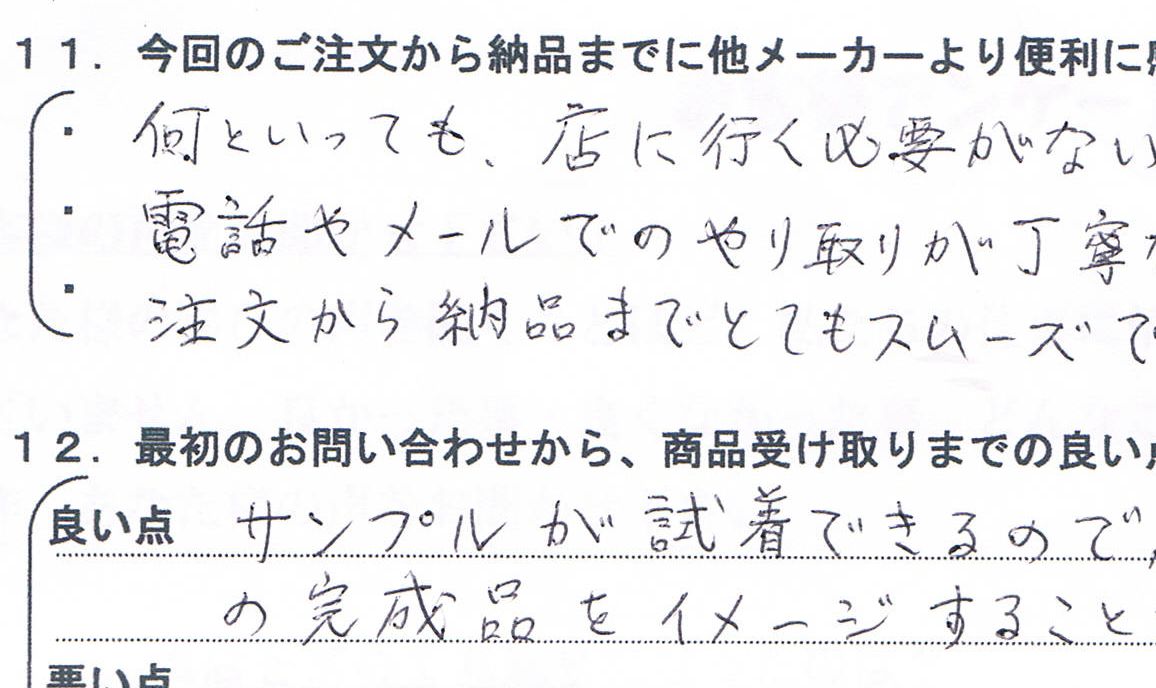 11．今回のご注文から納品までに他メーカーより便利に
・何といっても、店に行く必要がない
・電話やメールでのやり取りが丁寧
・注文から納品までとてもスムーズで
12．最初のお問い合わせから、商品受け取りまでの良い
良い点 サンプルが試着できるので、
の完成品をイメージすること
悪い点